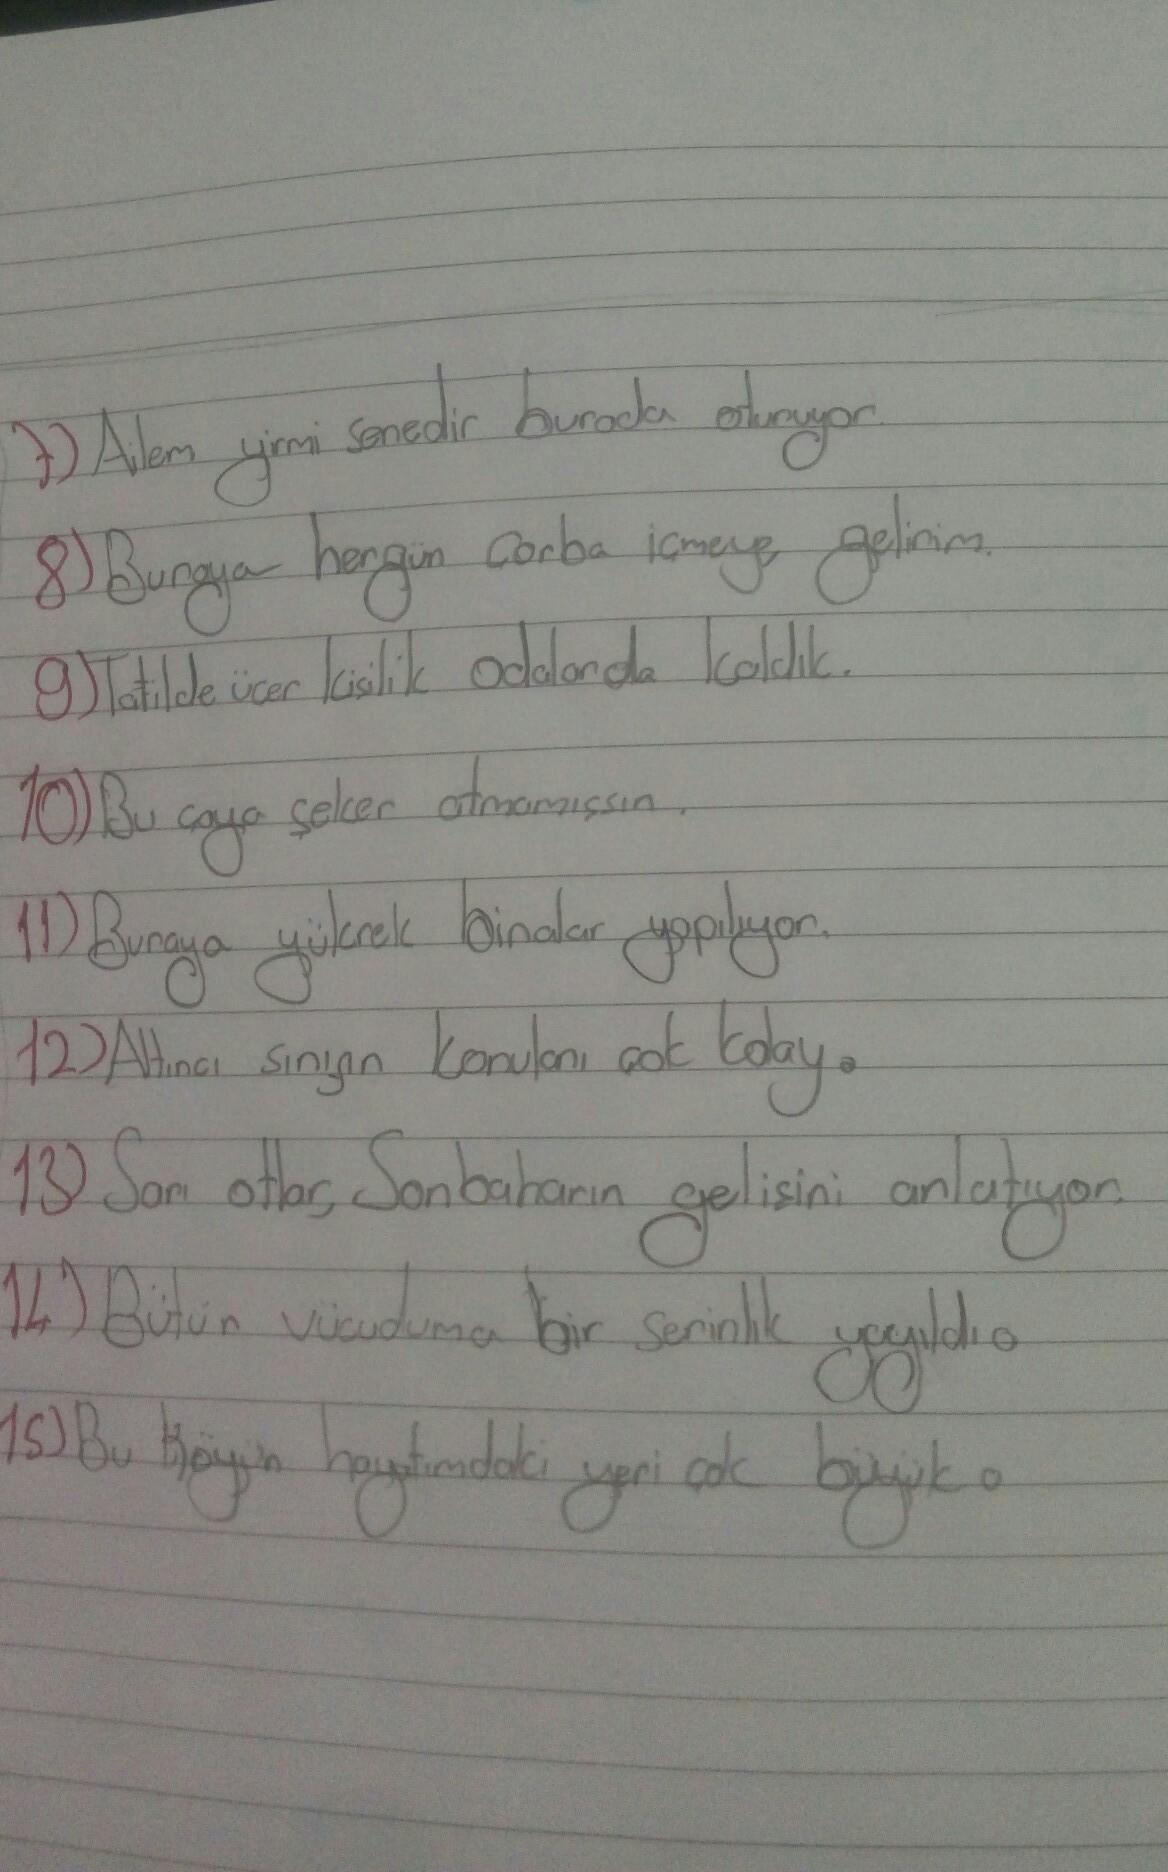 7) Ailem yirmi senedir burada oturuyor.
8) Buraya hergün corba icmeye gelirim.
9) Tatilde ücer kisilik odalarda kaldık.
10) Bu caya şeker atmamıssın.
11) Buraya yüksek binalar yapılıyor.
12) Altıncı sınıfın konuları cok kolay.
13) Sarı otlar, Sonbaharın gelisini anlatıyor.
14) Bütün vücuduma bir serinlik yayıldı.
15) Bu köyün hayatımdaki yeri cok büyük.